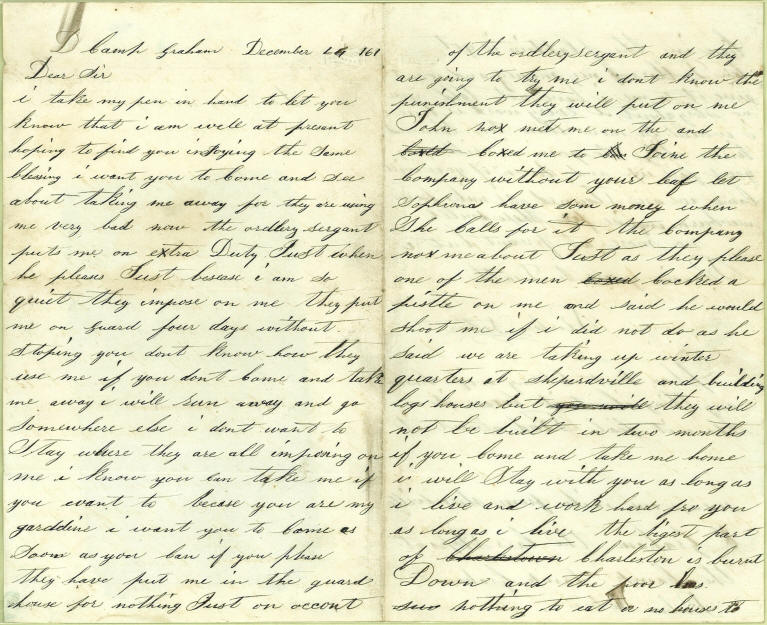 Camp Graham December 29 161
Dear Sir
i take my pen in hand to let you
know that i am well at presant
hoping to find you injoying the Same
blessing i want you to Come and See
about taking me away for they are using
me very bad now the ordlery sergant
puts me on extra Duty Just when
he pleases Just becase i am so
quiet they impose on me they put
me on guard four days without
stoping you dont know how they
use me if you dont Come and take
me away i will run away and go
Somewhere else i dont want to
Stay where they are all imposing on
me i know you can take me if
you want to becase you are my
garddine i want you to Come as
Soon as your Can if you please
they have put me in the guard
house for nothing Just on accont
of the ordlery sergant and they
are going to try me i dont know the
punishment they will put on me
John nox met me on the and
boxed boxed me to Joine the
Company without your leaf let
Sophrona have Som money when
She Calls for it the Company
nox me about Just as they please
one of the men boxed bocked a
pistle on me and said he would
shoot me if i did not do as he
said we are taking up winter
quarters at sheperdville and building
logs houses but you will they will
not be built in two months
if you Come and take me home
i will Stay with you as long as
i live and work hard fro you
as long as i live the bigest part
of Charlestown Charleston is burnt
Down and the poor has
nothing to eat or no houses to